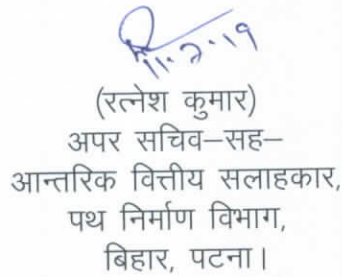 ११.२.१९
(रत्नेश कुमार)
अपर सचिव–सह–
आन्तरिक वित्तीय सलाहकार,
पथ निर्माण विभाग,
बिहार, पटना।